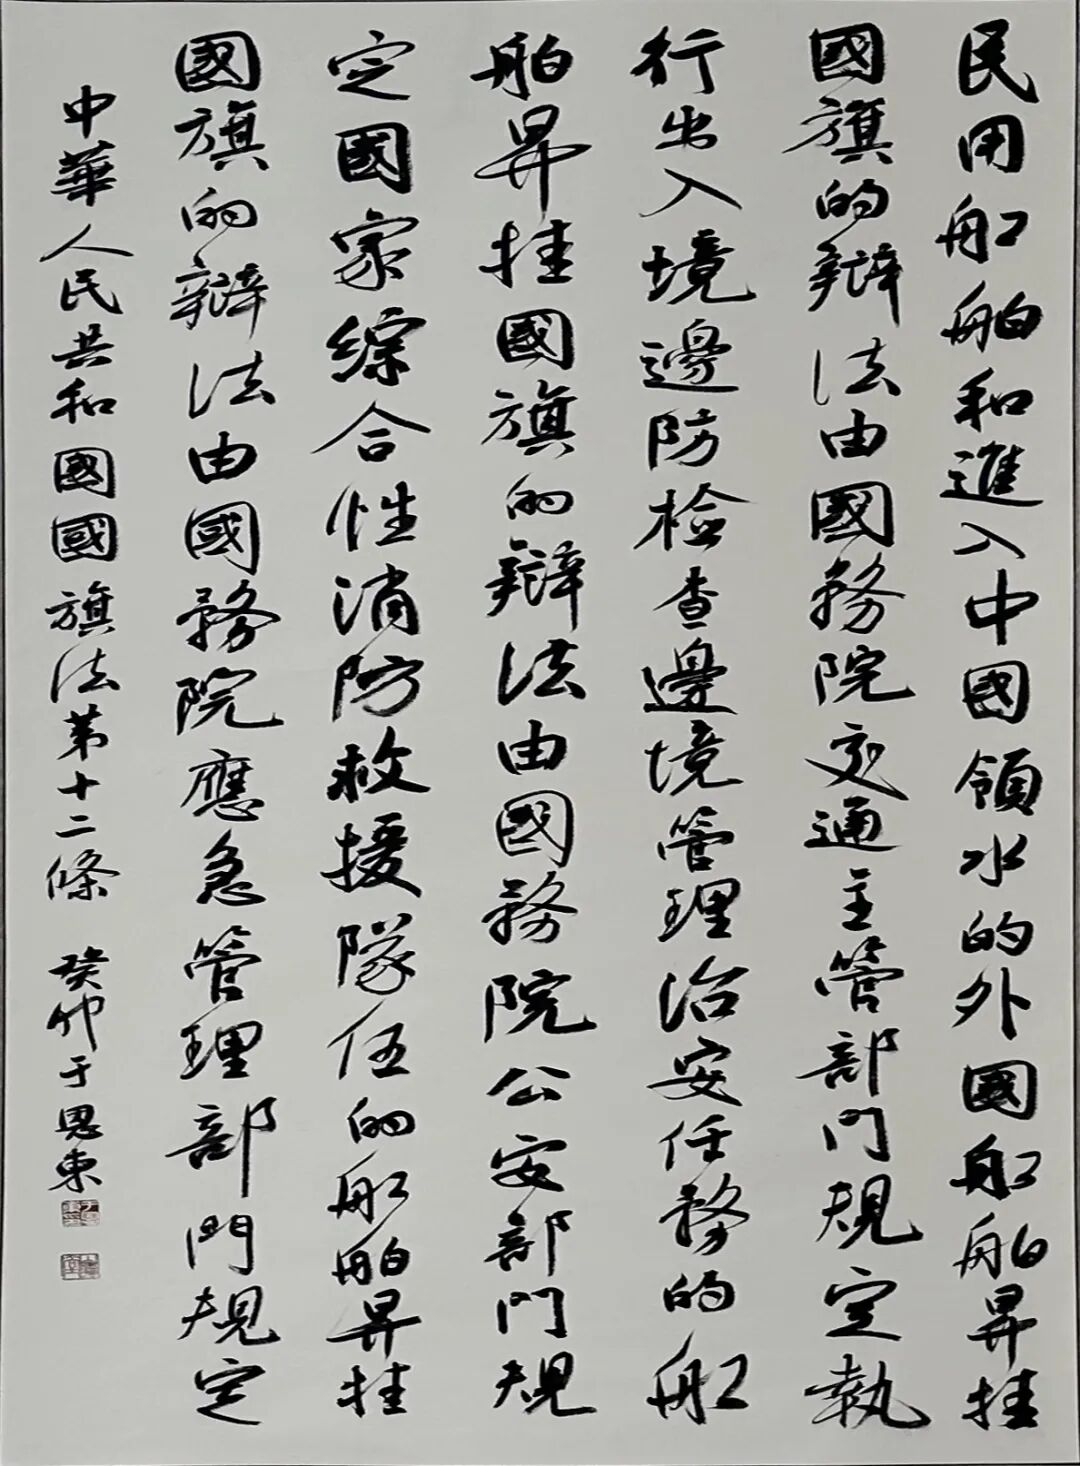 民用船舶和進入中國領水的外國船舶昇挂
國旗的辦法由國務院交通主管部门規定執
行出入境邊防檢查邊境管理治安任務的船
舶昇挂國旗的辦法由國務院公安部门規
定國家綜合性消防救援隊伍的船舶昇挂
國旗的辦法由國務院應急管理部門規定
中華人民共和國國旗法第十二條 癸卯于恩東